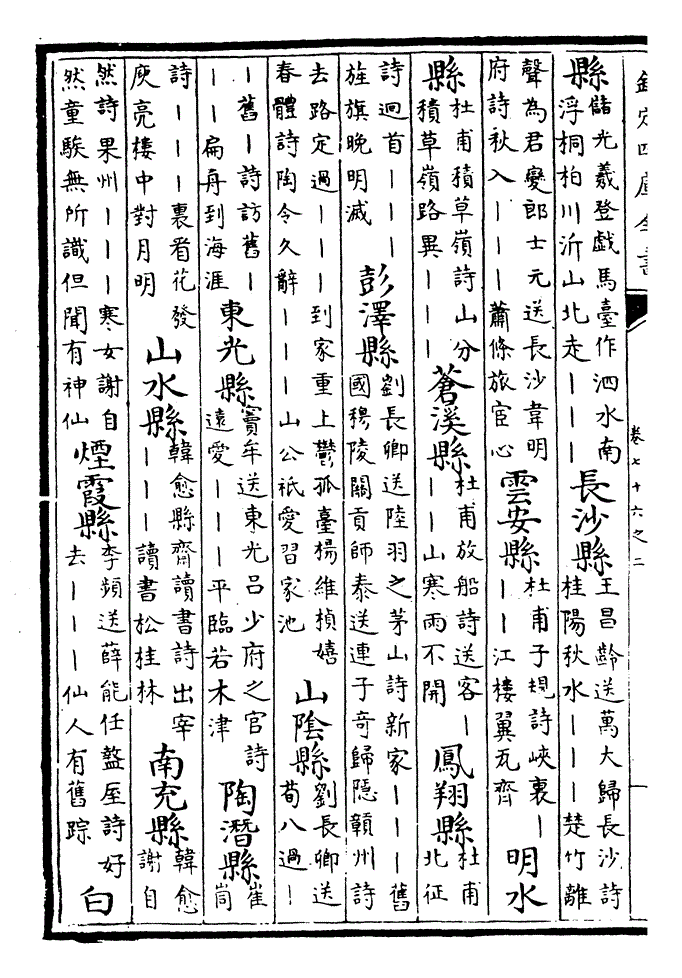 欽定四庫全書
卷七十六之二
縣儲光羲登戲馬臺作泗水南浮桐柏川沂山北走丨丨丨長沙縣王昌齡送萬大歸長沙詩桂陽秋水丨丨丨楚竹離
聲為君變郎士元送長沙韋明府詩秋入丨丨丨蕭條旅宦心雲安縣杜甫子規詩峽裏丨丨丨江樓翼瓦齊明水
縣杜甫積草嶺詩山分積草嶺路異丨丨丨蒼溪縣杜甫放船詩送客丨丨丨山寒雨不開鳳翔縣杜甫北征
詩迴首丨丨丨旌旗晚明滅彭澤縣劉長卿送陸羽之茅山詩新家丨丨丨舊國穆陵關貢師泰送連子奇歸隱贛州詩
去路定過丨丨丨到家重上鬱孤臺楊維楨嬉春體詩陶令久辭丨丨丨山公祇愛習家池山陰縣劉長卿送荀八過丨
丨舊丨詩訪舊丨丨丨扁舟到海涯東光縣竇牟送東光呂少府之官詩遠愛丨丨丨平臨若木津陶潛縣崔峒
詩丨丨丨裏看花發庾亮樓中對月明山水縣韓愈縣齋讀書詩出宰丨丨丨讀書松桂林南充縣韓愈謝自
然詩果州丨丨丨寒女謝自然童騃無所識但聞有神仙煙霞縣李頻送薛能任盩厔詩好去丨丨丨仙人有舊踪白